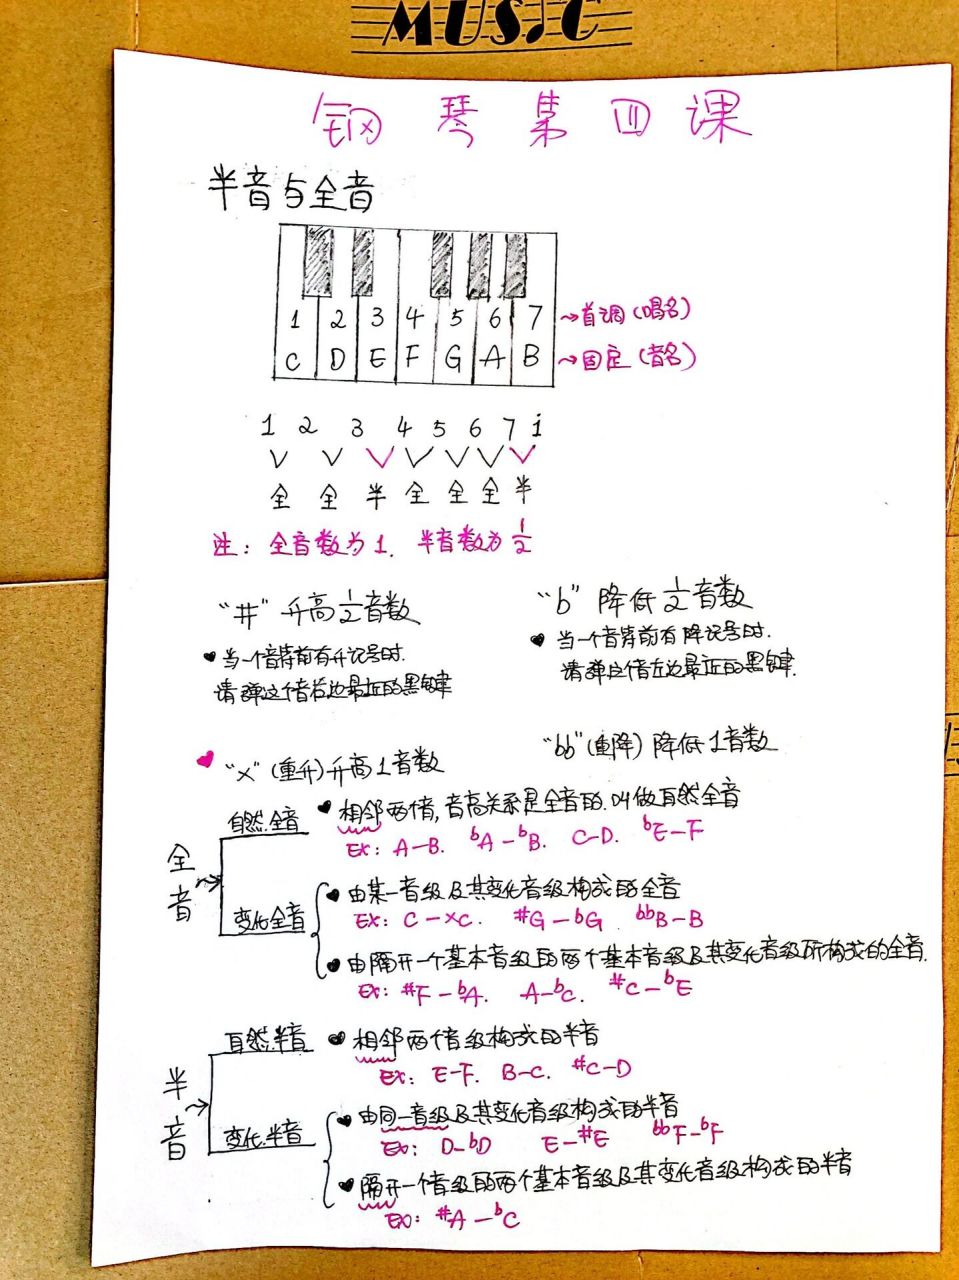 MUSIC
钢琴第四课
半音与全音
1 2 3 4 5 6 7 →首调(唱名)
C D E F G A B →固定(音名)
1 2 3 4 5 6 7 i
全 全 半 全 全 全 半
注: 全音数为1. 半音数为½
"#" 升高½音数
♥ 当一个音符前有升记号时.
请弹这个音右边最近的黑键
"b" 降低½音数
♥ 当一个音符前有降记号时.
请弹这个音左边最近的黑键.
♥ "×" (重升)升高1音数
"bb"(重降) 降低1音数
全音 →
自然全音 ♥ 相邻两音,音高关系是全音的.叫做自然全音
Ex: A—B. bA—bB. C—D. bE—F
变化全音 ♥ 由某一音级及其变化音级构成的全音
Ex: C—×C. #G—bG bbB—B
♥ 由隔开一个基本音级的两个基本音级及其变化音级所构成的全音.
Ex: #F—bA. A—bC. #C—bE
半音 →
自然半音 ♥ 相邻两个音级构成的半音
Ex: E—F. B—C. #C—D
变化半音 ♥ 由同一音级及其变化音级构成的半音
Ex: D—bD E—#E bbF—bF
♥ 隔开一个音级的两个基本音级及其变化音级构成的半音
Ex: #A—bC